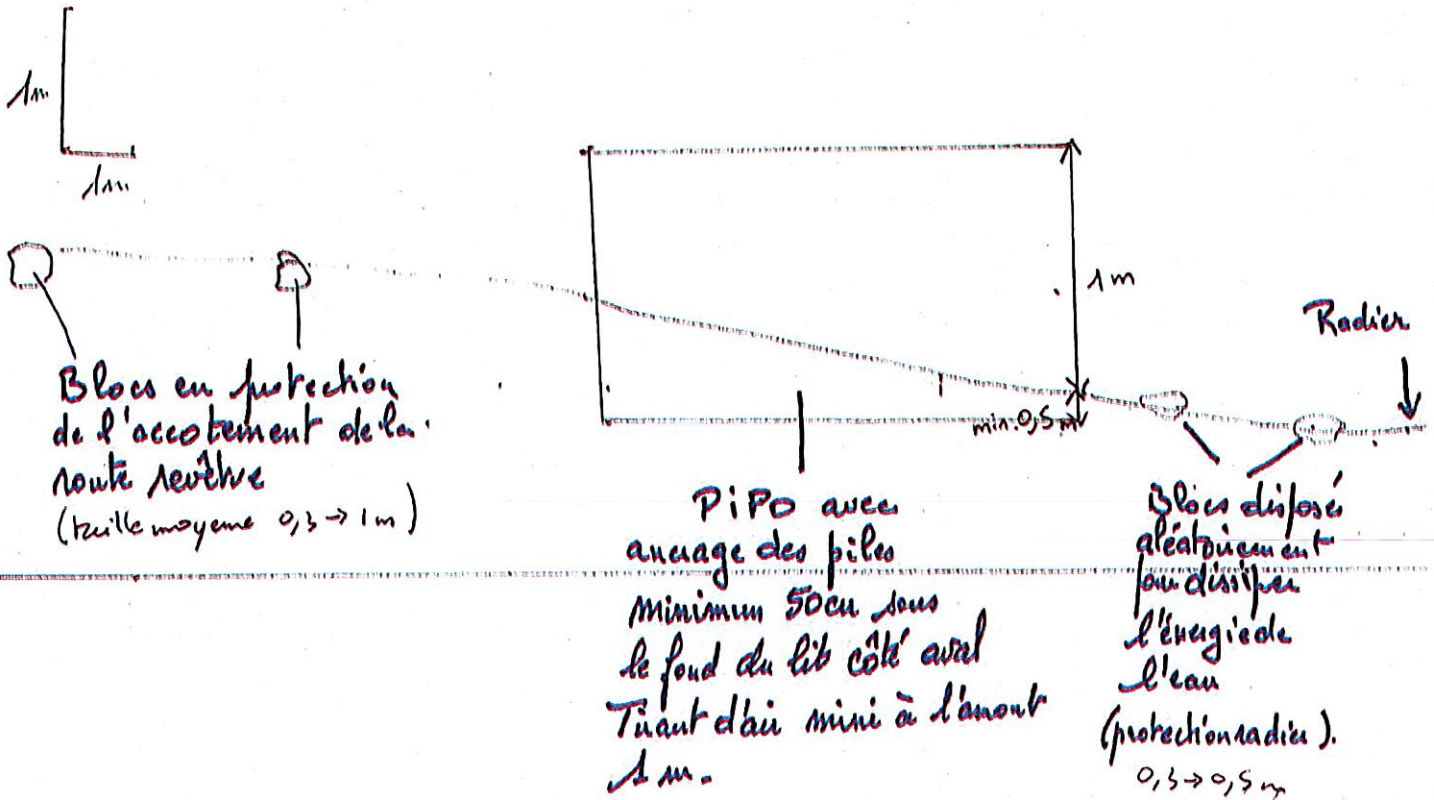 1m
1m
1m
min. 0,5 m
Radier
Blocs en protection
de l'accotement de la
route revêtue
(taille moyenne 0,3 → 1m)
PiPO avec
ancrage des piles
minimum 50cm sous
le fond du lit côté aval
Tirant d'air mini à l'amont
1 m.
Blocs disposé
aléatoirement
pou dissiper
l'énergie de
l'eau
(protection radier).
0,3 → 0,5 m